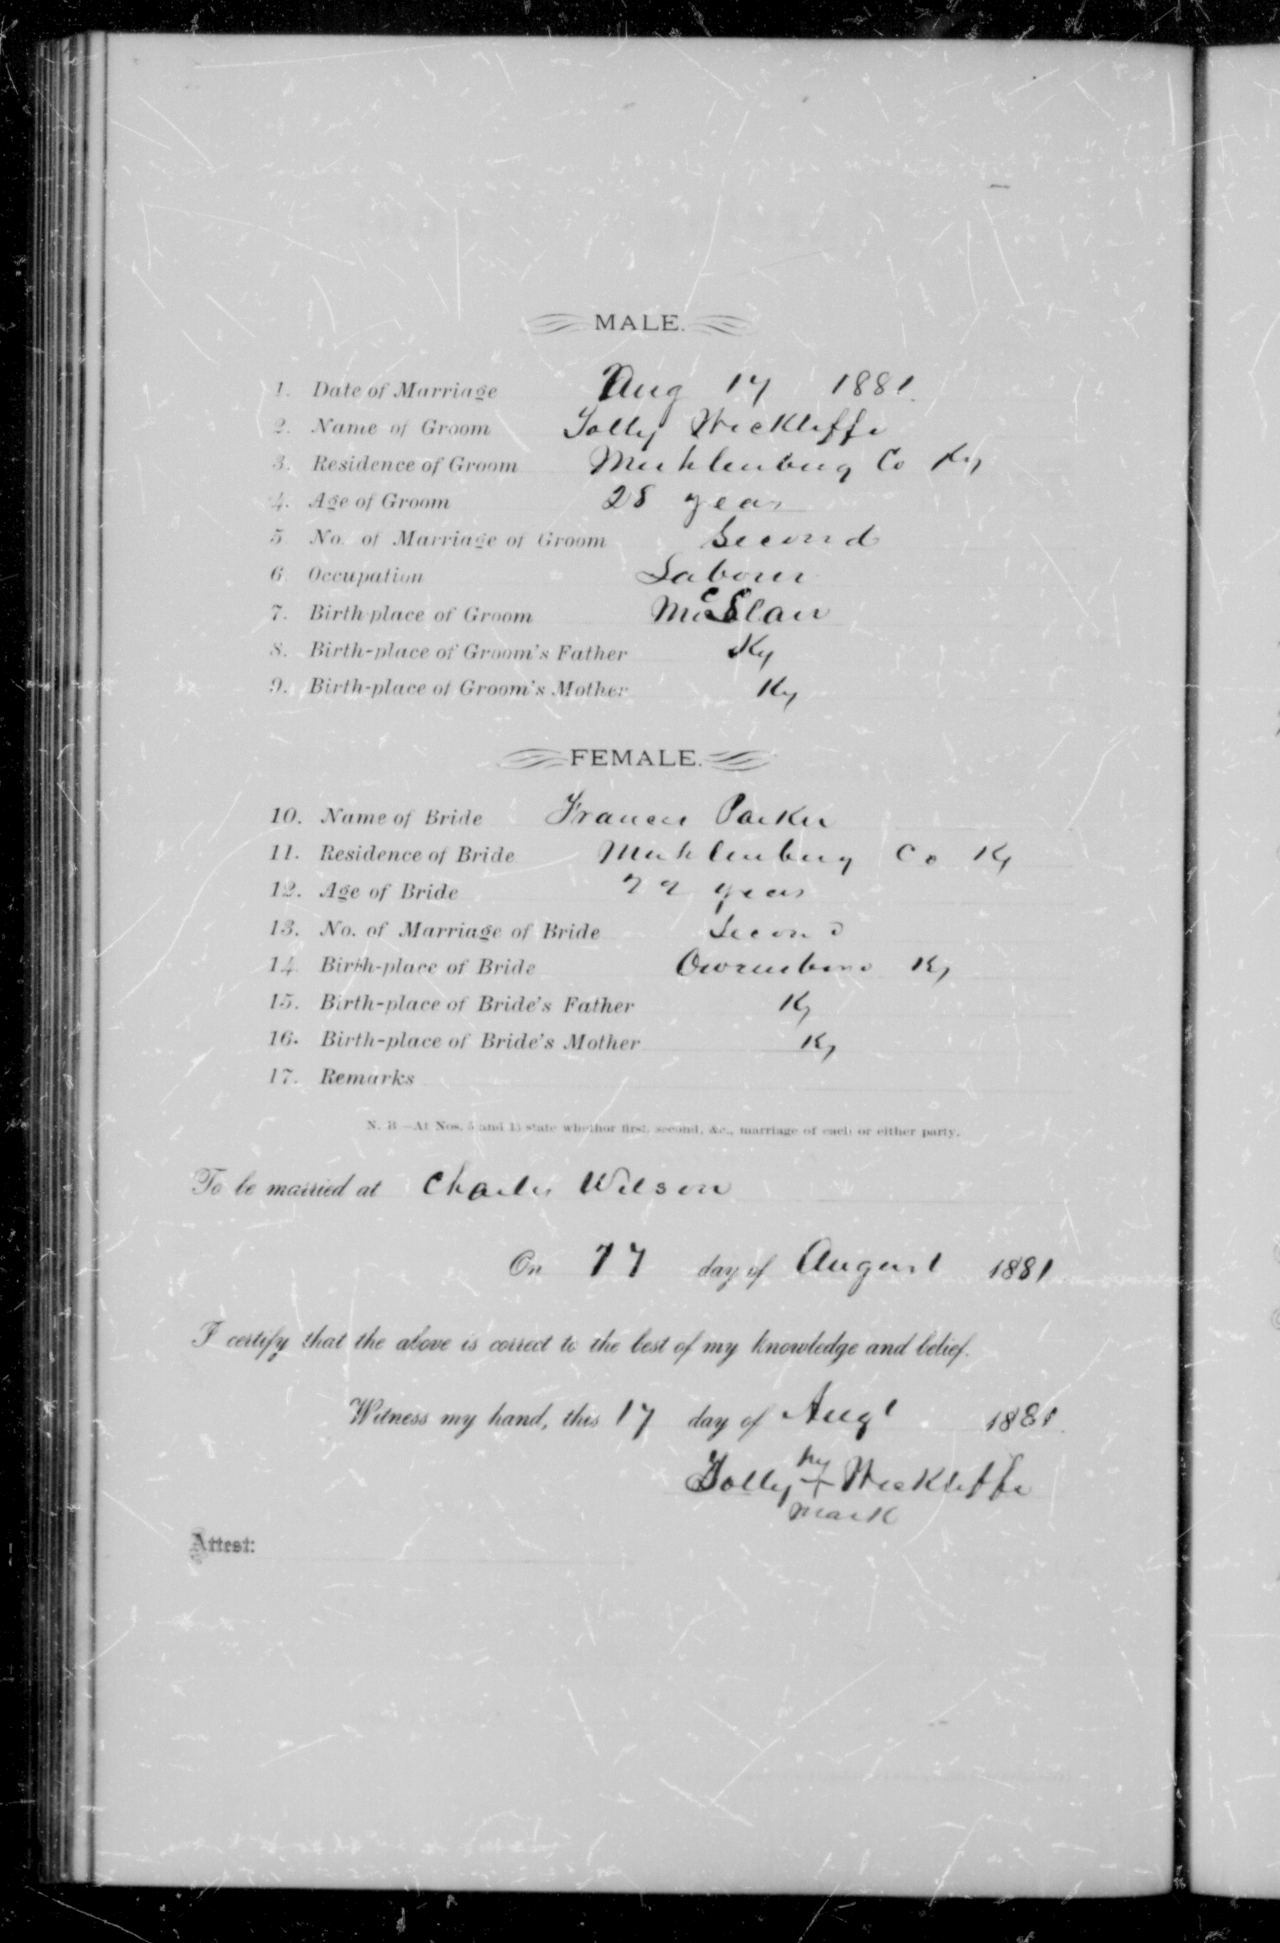 MALE.
1. Date of Marriage Aug 17 1881.
2. Name of Groom Tolly Wickliffe
3. Residence of Groom Muhlenburg Co Ky
4. Age of Groom 28 years
5 No. of Marriage of Groom Second
6. Occupation Labour
7. Birth-place of Groom
8. Birth-place of Groom's Father Ky
9. Birth-place of Groom's Mother Ky
FEMALE.
10. Name of Bride Frances Parker
11. Residence of Bride Muhlenburg Co Ky
12. Age of Bride 22 years
13. No. of Marriage of Bride Second
14 Birth-place of Bride Owensboro Ky
15. Birth-place of Bride's Father Ky
16. Birth-place of Bride's Mother Ky
17. Remarks
N. B.—At Nos. 5 and 13 state whether first, second, &c., marriage of each or either party.
To be married at Charles Wilson
On 17 day of August 1881
I certify that the above is correct to the best of my knowledge and belief.
Witness my hand, this 17 day of Augt 1881.
his
Tolly + Wickliffe
mark
Attest: